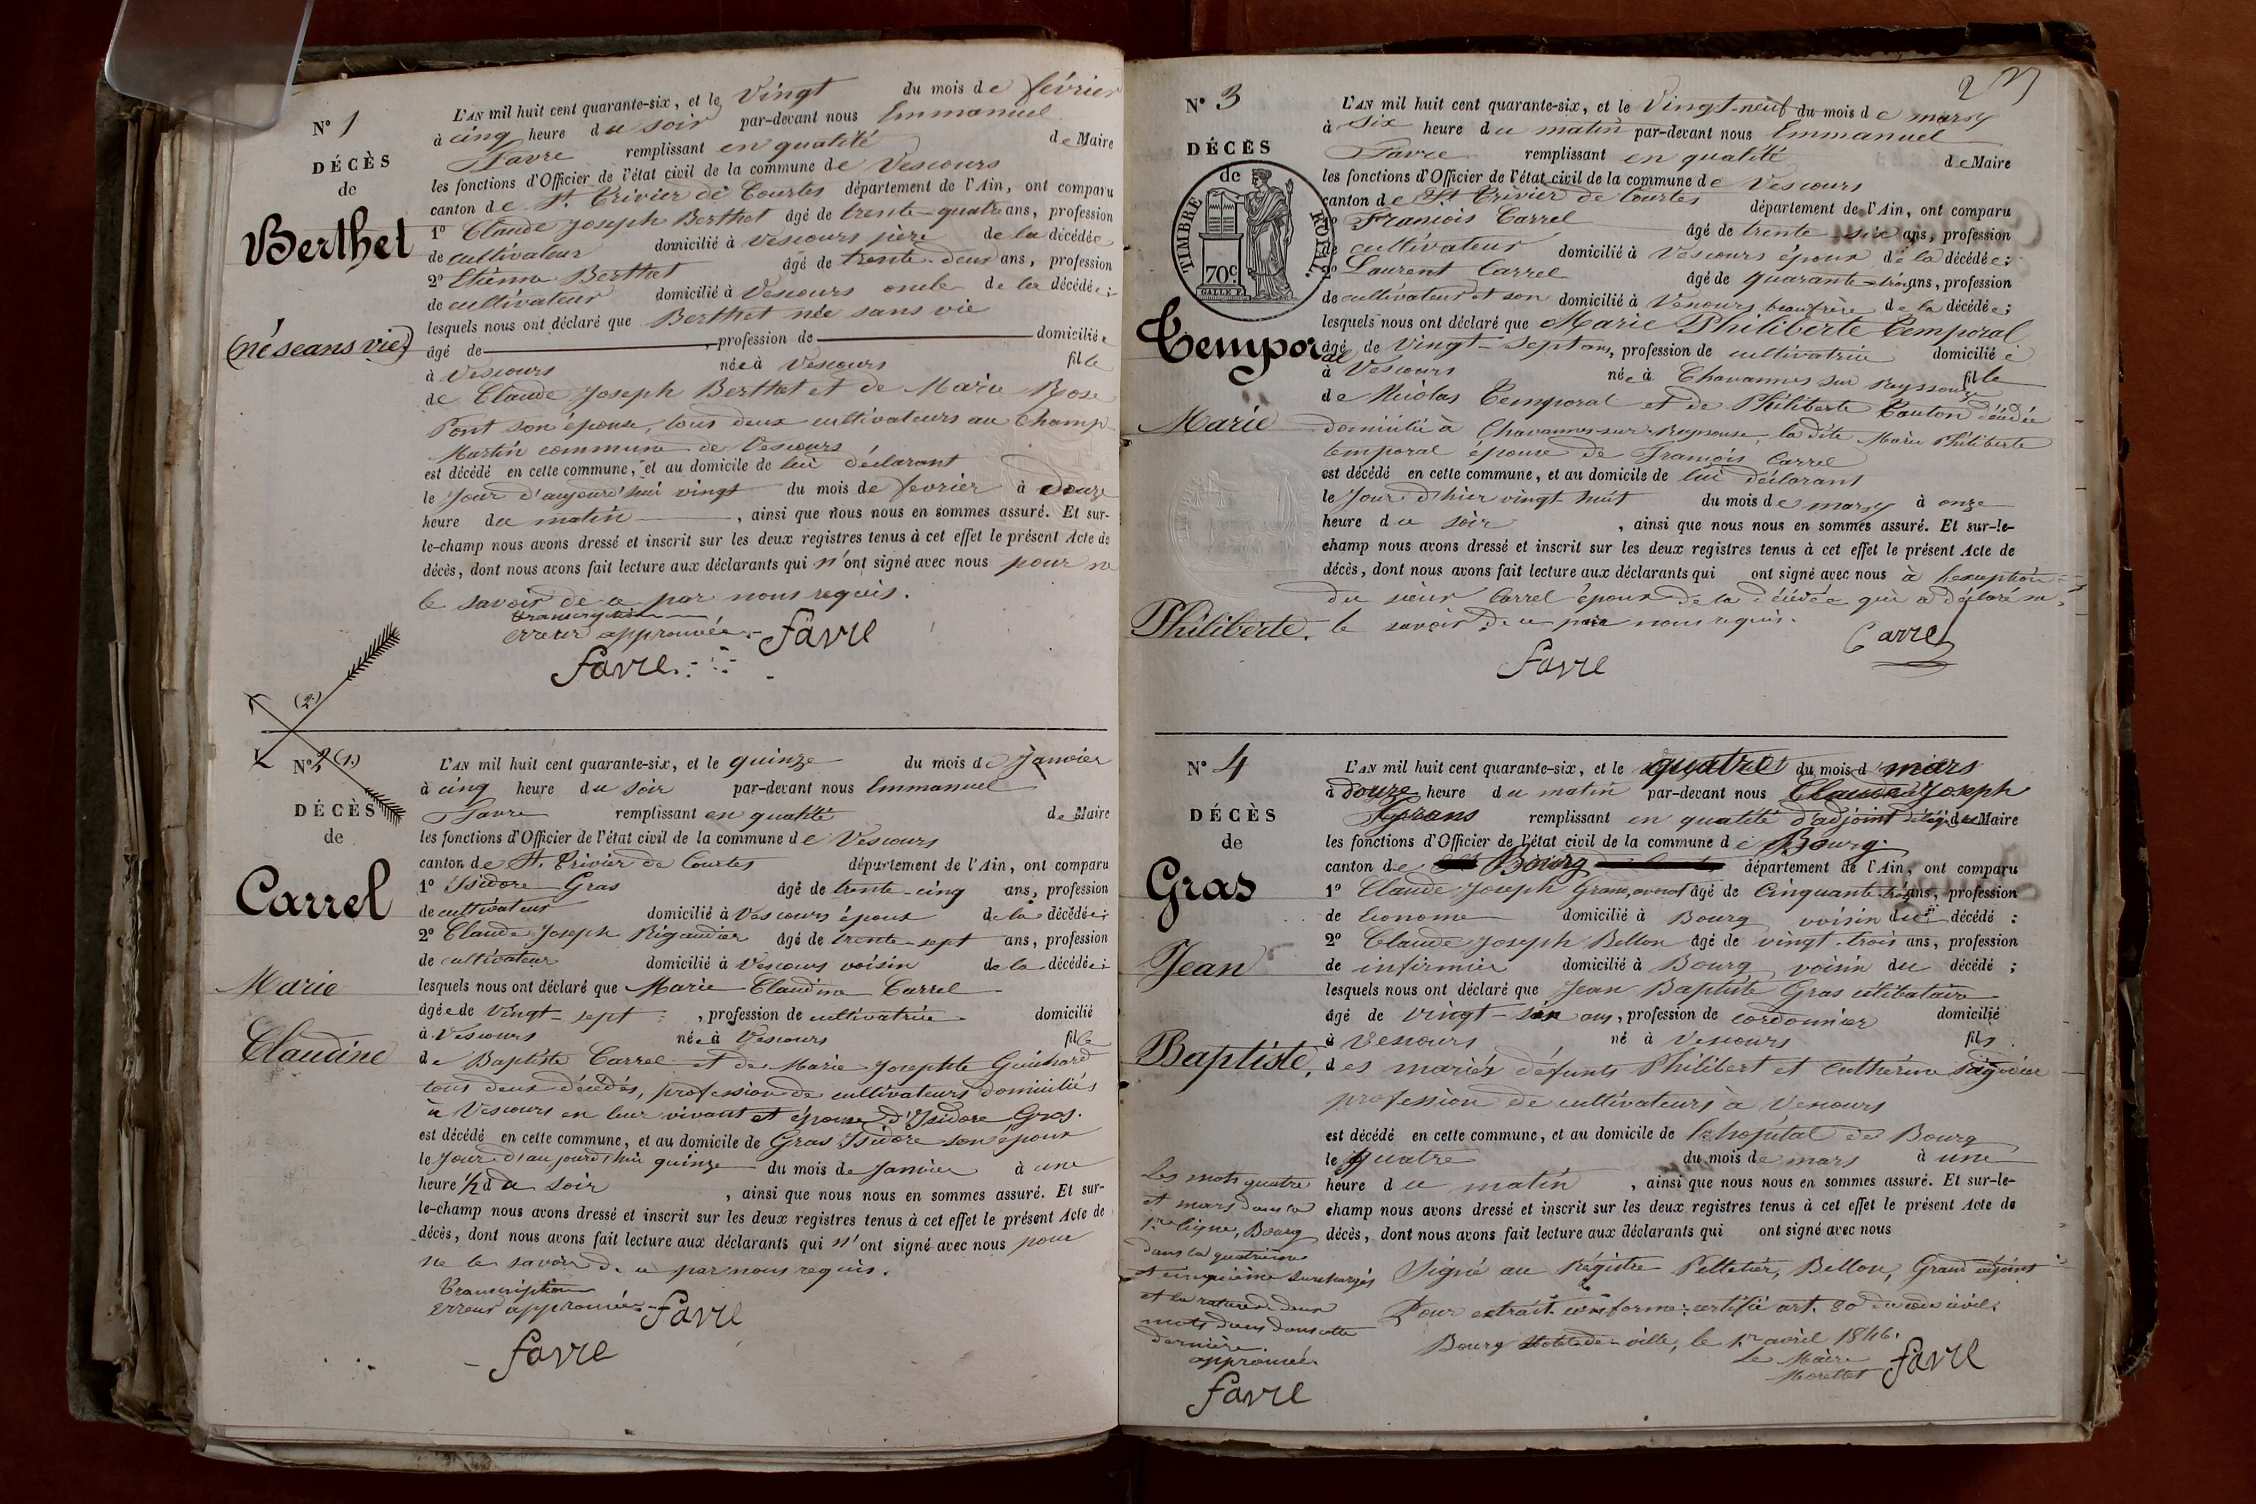 N° 1
DÉCÈS
de
Berthet
(né seans vie)
L'AN mil huit cent quarante-six, et le Vingt du mois de février
à cinq heure du soir par-devant nous Emmanuel
Favre remplissant en qualité de Maire
les fonctions d'Officier de l'état civil de la commune de Vescours
canton de St. Trivier de Courtes département de l'Ain, ont comparu
1° Claude Joseph Berthet âgé de trente-quatre ans, profession
de cultivateur domicilié à Vescours père de la décédée
2° Etienne Berthet âgé de trente-deux ans, profession
de cultivateur domicilié à Vescours oncle de la décédée;
lesquels nous ont déclaré que Berthet née sans vie
âgé de , profession de domiciliée
à Vescours née à Vescours fille
de Claude Joseph Berthet et de Marie Rose
Pont son épouse, tous deux cultivateurs au Champ
Martin commune de Vescours
est décédé en cette commune, et au domicile de lui déclarant
le Jour d'aujourd'hui vingt du mois de fevrier à douze
heure du matin , ainsi que nous nous en sommes assuré. Et sur-
le-champ nous avons dressé et inscrit sur les deux registres tenus à cet effet le présent Acte de
décès, dont nous avons fait lecture aux déclarants qui n'ont signé avec nous pour ne
le savoir de ce par nous requis.
transcription
erreur approuvée. Favre
Favre
(2.)
N° 2 (1.)
DÉCÈS
de
Carrel
Marie
Claudine
L'AN mil huit cent quarante-six, et le quinze du mois de Janvier
à cinq heure du soir par-devant nous Emmanuel
Favre remplissant en qualité de Maire
les fonctions d'Officier de l'état civil de la commune de Vescours
canton de St. Trivier de Courtes département de l'Ain, ont comparu
1° Isidore Gras âgé de trente-cinq ans, profession
de cultivateur domicilié à Vescours époux de la décédée;
2° Claude Joseph Rigaudier âgé de trente-sept ans, profession
de cultivateur domicilié à Vescours voisin de la décédée;
lesquels nous ont déclaré que Marie Claudine Carrel
âgée de Vingt-sept , profession de cultivatrice domicilié
à Vescours née à Vescours fille
de Baptiste Carrel et de Marie Josephte Guichard
tous deux décédés, profession de cultivateurs domiciliés
à Vescours en leur vivant et épouse d'Isidore Gras.
est décédé en cette commune, et au domicile de Gras Isidore son époux
le Jour d'aujourd'hui quinze du mois de Janvier à une
heure 1/2 du soir , ainsi que nous nous en sommes assuré. Et sur-
le-champ nous avons dressé et inscrit sur les deux registres tenus à cet effet le présent Acte de
décès, dont nous avons fait lecture aux déclarants qui n'ont signé avec nous pour
ne le savoir de ce par nous requis.
Transcription
erreur approuvée. Favre
Favre
N° 3
DÉCÈS
de
TIMBRE ROYAL
70c
Temporal
Marie
Philiberte.
L'AN mil huit cent quarante-six, et le Vingt-neuf du mois de mars
à six heure du matin par-devant nous Emmanuel
Favre remplissant en qualité de Maire
les fonctions d'Officier de l'état civil de la commune de Vescours
canton de St. Trivier de Courtes département de l'Ain, ont comparu
François Carrel âgé de trente-six ans, profession
cultivateur domicilié à Vescours époux de la décédée;
Laurent Carrel âgé de quarante-trois ans, profession
de cultivateur et son domicilié à Vescours beaufrère de la décédée;
lesquels nous ont déclaré que Marie Philiberte Temporal
âgé de vingt-sept ans, profession de cultivatrice domicilié e
à Vescours née à Chavannes sur Reyssouze fille
de Nicolas Temporal et de Philiberte décédée
domicilié à Chavannes-sur-Reyssouze la dite Marie Philiberte
temporal épouse de François Carrel
est décédé en cette commune, et au domicile de lui déclarant
le Jour d'hier vingt huit du mois de mars à onze
heure du soir , ainsi que nous nous en sommes assuré. Et sur-le-
champ nous avons dressé et inscrit sur les deux registres tenus à cet effet le présent Acte de
décès, dont nous avons fait lecture aux déclarants qui ont signé avec nous à l'exception
du sieur Carrel époux de la décédée qui a déclaré ne
le savoir de ce par nous requis.
Carrel
Favre
N° 4
DÉCÈS
de
Gras
Jean
Baptiste.
L'AN mil huit cent quarante-six, et le quatre du mois d mars
à douze heure du matin par-devant nous Claude Joseph
Grans remplissant en qualité d'adjoint délégué de Maire
les fonctions d'Officier de l'état civil de la commune de Bourg.
canton de Bourg département de l'Ain, ont comparu
1° Claude Joseph âgé de Cinquante-trois ans, profession
de Econome domicilié à Bourg voisin du décédé :
2° Claude Joseph Bellon âgé de vingt-trois ans, profession
de infirmier domicilié à Bourg voisin du décédé ;
lesquels nous ont déclaré que Jean Baptiste Gras célibataire
âgé de vingt-six ans, profession de cordonnier domicilié
à Vescours né à Vescours fils
des mariés défunts Philibert et Cathérine
profession de cultivateurs à Vescours
est décédé en cette commune, et au domicile de l'hôpital de Bourg
le quatre du mois de mars à une
heure du matin , ainsi que nous nous en sommes assuré. Et sur-le-
champ nous avons dressé et inscrit sur les deux registres tenus à cet effet le présent Acte de
décès, dont nous avons fait lecture aux déclarants qui ont signé avec nous
Signé au Régistre Pelletier, Bellon, Grand adjoint
Pour extrait conforme; certifié art. 80 du code civil.
Bourg hôtel-de-ville, le 1er avril 1846.
Le Maire Favre
Morellet
Les mots quatre
et mars dans la
1re ligne, Bourg
dans la quatrième
et cinquième surchargés
et la rature de deux
mots dans cette
dernière.
approuvée
Favre